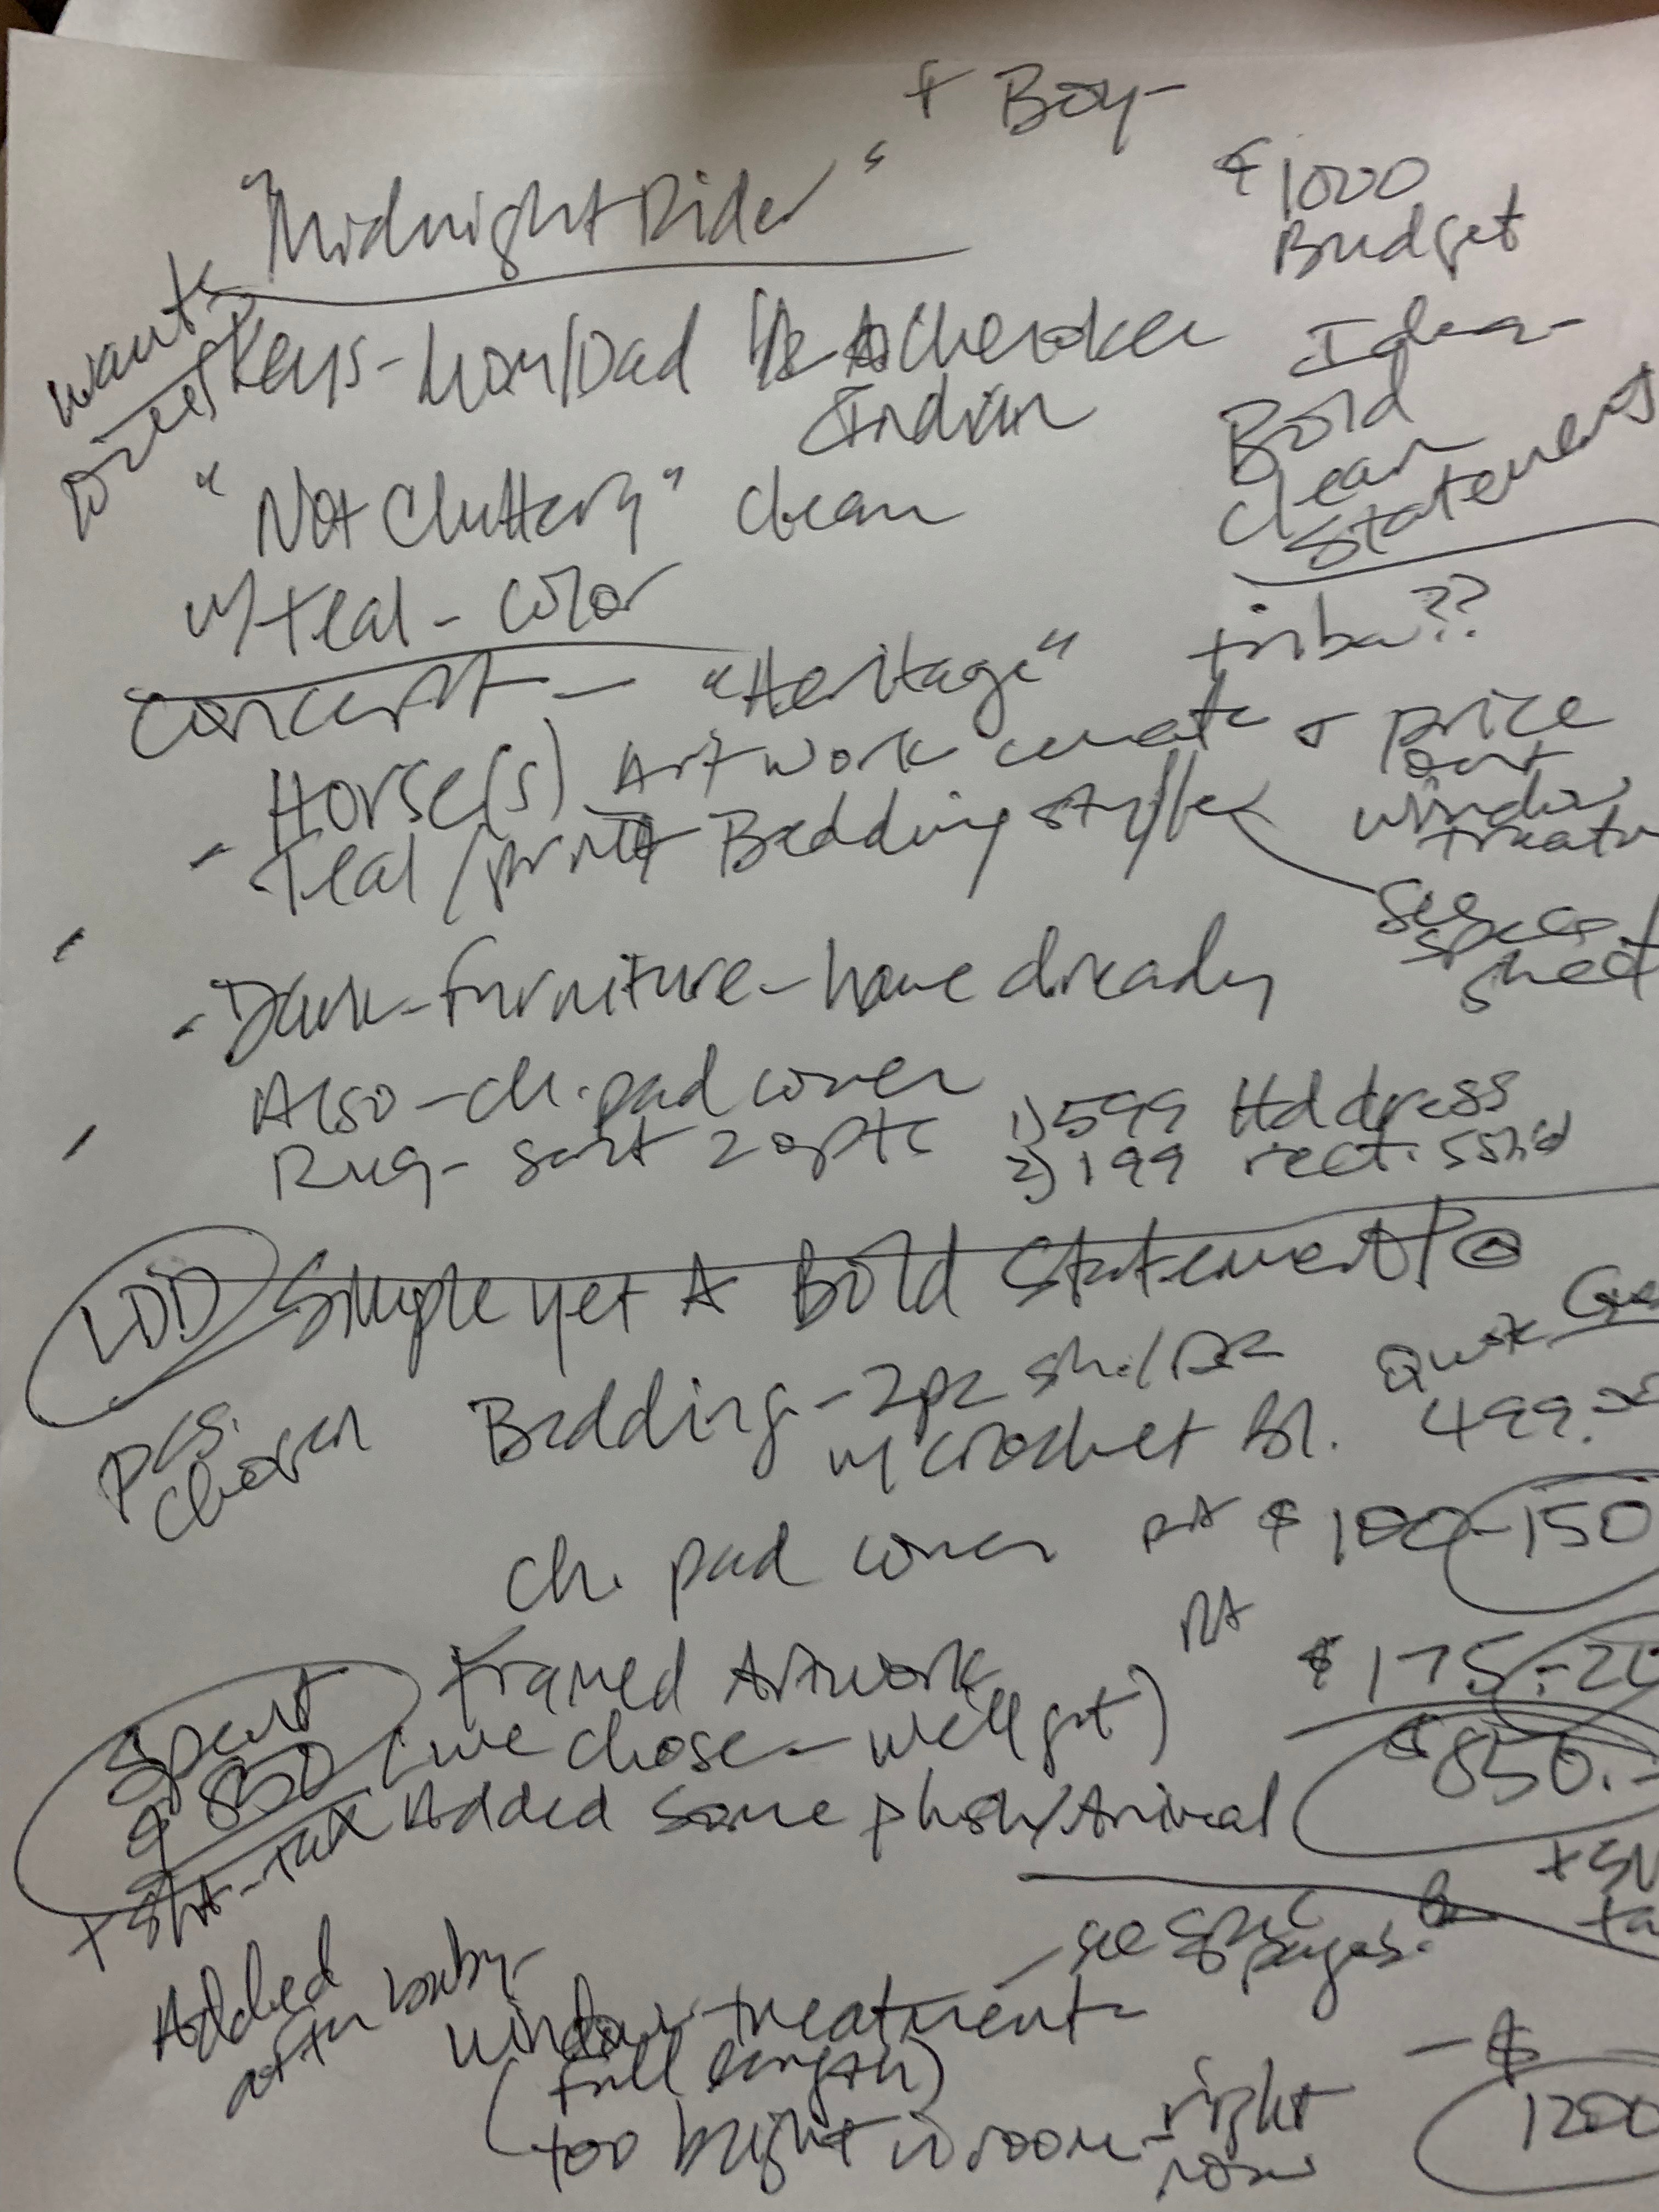 + Boy -
"Midnight Rider"
$1000
Budget
wants
Keys - Mom/Dad 1/2 Cherokee
Indian
Idea -
Bold
clean
Statement
"Not Cluttery" clean
w/ teal - color
Concept - "Heritage"
tribal ??
Horse(s) Artwork create + price
out
window
- Teal / print Bedding style
See
spec
sheet
- Dark - furniture - have already
Also - ch. pad cover
Rug - sent 2 opts 1) 599 Hd dress
2) 199 rect. solid
LDD Simple yet A Bold Statement!
Pcs.
Chosen
Bedding - 2pc
w/ crochet bl.
Quote
499.
ch. pad cover $100 - 150
Framed Artwork $175 - 20
(we chose - we'll get)
$850. -
Spent
$850
+ Sh + tax
Added Some plush/Animal
see spec
pages.
Added
after baby -
window treatments
(full length)
too bright in room - right
now
- $
1200